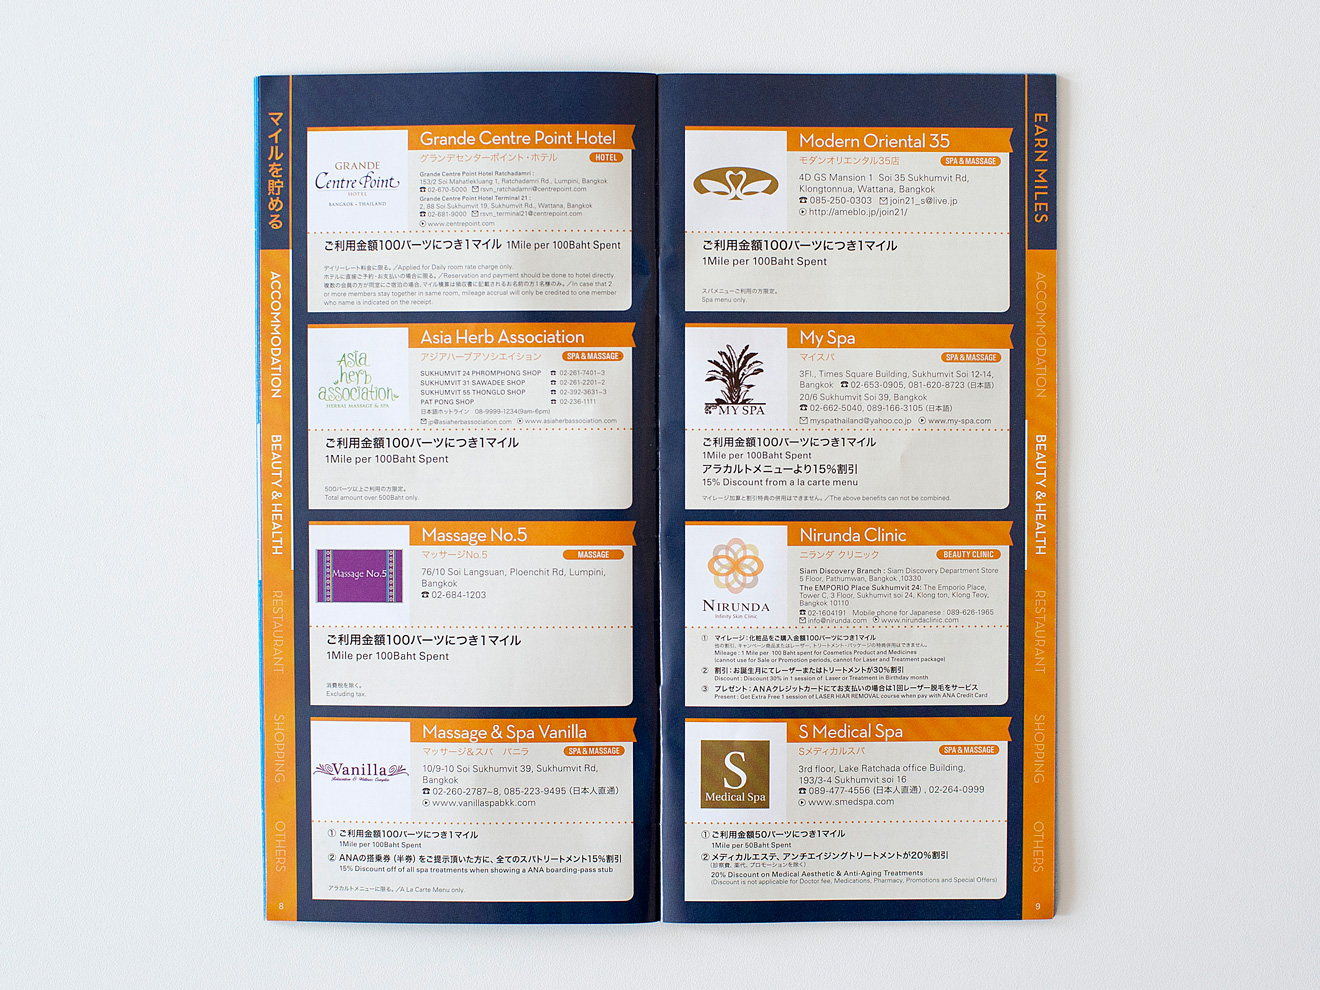 マイルを貯める
ACCOMMODATION
BEAUTY & HEALTH
RESTAURANT
SHOPPING
OTHERS
8
GRANDE
Centre Point
HOTEL
BANGKOK • THAILAND
Grande Centre Point Hotel
グランデセンターポイント・ホテル
HOTEL
Grande Centre Point Hotel Ratchadamri :
153/2 Soi Mahatlekluang 1, Ratchadamri Rd., Lumpini, Bangkok
02-670-5000 rsvn_ratchadamri@centrepoint.com
Grande Centre Point Hotel Terminal 21 :
2, 88 Soi Sukhumvit 19, Sukhumvit Rd., Wattana, Bangkok
02-681-9000 rsvn_terminal21@centrepoint.com
www.centrepoint.com
ご利用金額100バーツにつき1マイル 1Mile per 100Baht Spent
デイリーレート料金に限る。/Applied for Daily room rate charge only.
ホテルに直接ご予約・お支払いの場合に限る。/Reservation and payment should be done to hotel directly.
複数の会員の方が同室にご宿泊の場合、マイル積算は領収書に記載されるお名前の方1名様のみ。/In case that 2
or more members stay together in same room, mileage accrual will only be credited to one member
who name is indicated on the receipt.
Asia
herb
association
HERBAL MASSAGE & SPA
Asia Herb Association
アジアハーブアソシエイション
SPA & MASSAGE
SUKHUMVIT 24 PHROMPHONG SHOP 02-261-7401~3
SUKHUMVIT 31 SAWADEE SHOP 02-261-2201~2
SUKHUMVIT 55 THONGLO SHOP 02-392-3631~3
PAT PONG SHOP 02-236-1111
日本語ホットライン 08-9999-1234(9am-6pm)
jp@asiaherbassociation.com www.asiaherbassociation.com
ご利用金額100バーツにつき1マイル
1Mile per 100Baht Spent
500バーツ以上ご利用の方限定。
Total amount over 500Baht only.
Massage No.5
Massage No.5
マッサージNo.5
MASSAGE
76/10 Soi Langsuan, Ploenchit Rd, Lumpini,
Bangkok
02-684-1203
ご利用金額100バーツにつき1マイル
1Mile per 100Baht Spent
消費税を除く。
Excluding tax.
Vanilla
Relaxation & Wellness Complex
Massage & Spa Vanilla
マッサージ&スパ バニラ
SPA & MASSAGE
10/9-10 Soi Sukhumvit 39, Sukhumvit Rd,
Bangkok
02-260-2787~8, 085-223-9495 (日本人直通)
www.vanillaspabkk.com
① ご利用金額100バーツにつき1マイル
1Mile per 100Baht Spent
② ANAの搭乗券(半券)をご提示頂いた方に、全てのスパトリートメント15%割引
15% Discount off of all spa treatments when showing a ANA boarding-pass stub
アラカルトメニューに限る。/A La Carte Menu only.
EARN MILES
ACCOMMODATION
BEAUTY & HEALTH
RESTAURANT
SHOPPING
OTHERS
9
Modern Oriental 35
モダンオリエンタル35店
SPA & MASSAGE
4D GS Mansion 1 Soi 35 Sukhumvit Rd,
Klongtonnua, Wattana, Bangkok
085-250-0303 join21_s@live.jp
http://ameblo.jp/join21/
ご利用金額100バーツにつき1マイル
1Mile per 100Baht Spent
スパメニューご利用の方限定。
Spa menu only.
MY SPA
My Spa
マイスパ
SPA & MASSAGE
3Fl., Times Square Building, Sukhumvit Soi 12-14,
Bangkok 02-653-0905, 081-620-8723 (日本語)
20/6 Sukhumvit Soi 39, Bangkok
02-662-5040, 089-166-3105 (日本語)
myspathailand@yahoo.co.jp www.my-spa.com
ご利用金額100バーツにつき1マイル
1Mile per 100Baht Spent
アラカルトメニューより15%割引
15% Discount from a la carte menu
マイレージ加算と割引特典の併用はできません。/The above benefits can not be combined.
NIRUNDA
Infinity Skin Clinic
Nirunda Clinic
ニランダ クリニック
BEAUTY CLINIC
Siam Discovery Branch : Siam Discovery Department Store
5 Floor, Pathumwan, Bangkok ,10330
The EMPORIO Place Sukhumvit 24: The Emporio Place,
Tower C, 3 Floor, Sukhumvit soi 24, Klong ton, Klong Teoy,
Bangkok 10110
02-1604191 Mobile phone for Japanese : 089-626-1965
info@nirunda.com www.nirundaclinic.com
① マイレージ:化粧品をご購入金額100バーツにつき1マイル
他の割引、キャンペーン商品またはレーザー、トリートメント・パッケージの特典併用はできません。
Mileage : 1 Mile per 100 Baht spent for Cosmetics Product and Medicines
(cannot use for Sale or Promotion periods, cannot for Laser and Treatment package)
② 割引:お誕生月にてレーザーまたはトリートメントが30%割引
Discount : Discount 30% in 1 session of Laser or Treatment in Birthday month
③ プレゼント:ANAクレジットカードにてお支払いの場合は1回レーザー脱毛をサービス
Present : Get Extra Free 1 session of LASER HIAR REMOVAL course when pay with ANA Credit Card
S
Medical Spa
S Medical Spa
Sメディカルスパ
SPA & MASSAGE
3rd floor, Lake Ratchada office Building,
193/3-4 Sukhumvit soi 16
089-477-4556 (日本人直通) , 02-264-0999
www.smedspa.com
① ご利用金額50バーツにつき1マイル
1Mile per 50Baht Spent
② メディカルエステ、アンチエイジングトリートメントが20%割引
(診察費、薬代、プロモーションを除く)
20% Discount on Medical Aesthetic & Anti-Aging Treatments
(Discount is not applicable for Doctor fee, Medications, Pharmacy, Promotions and Special Offers)